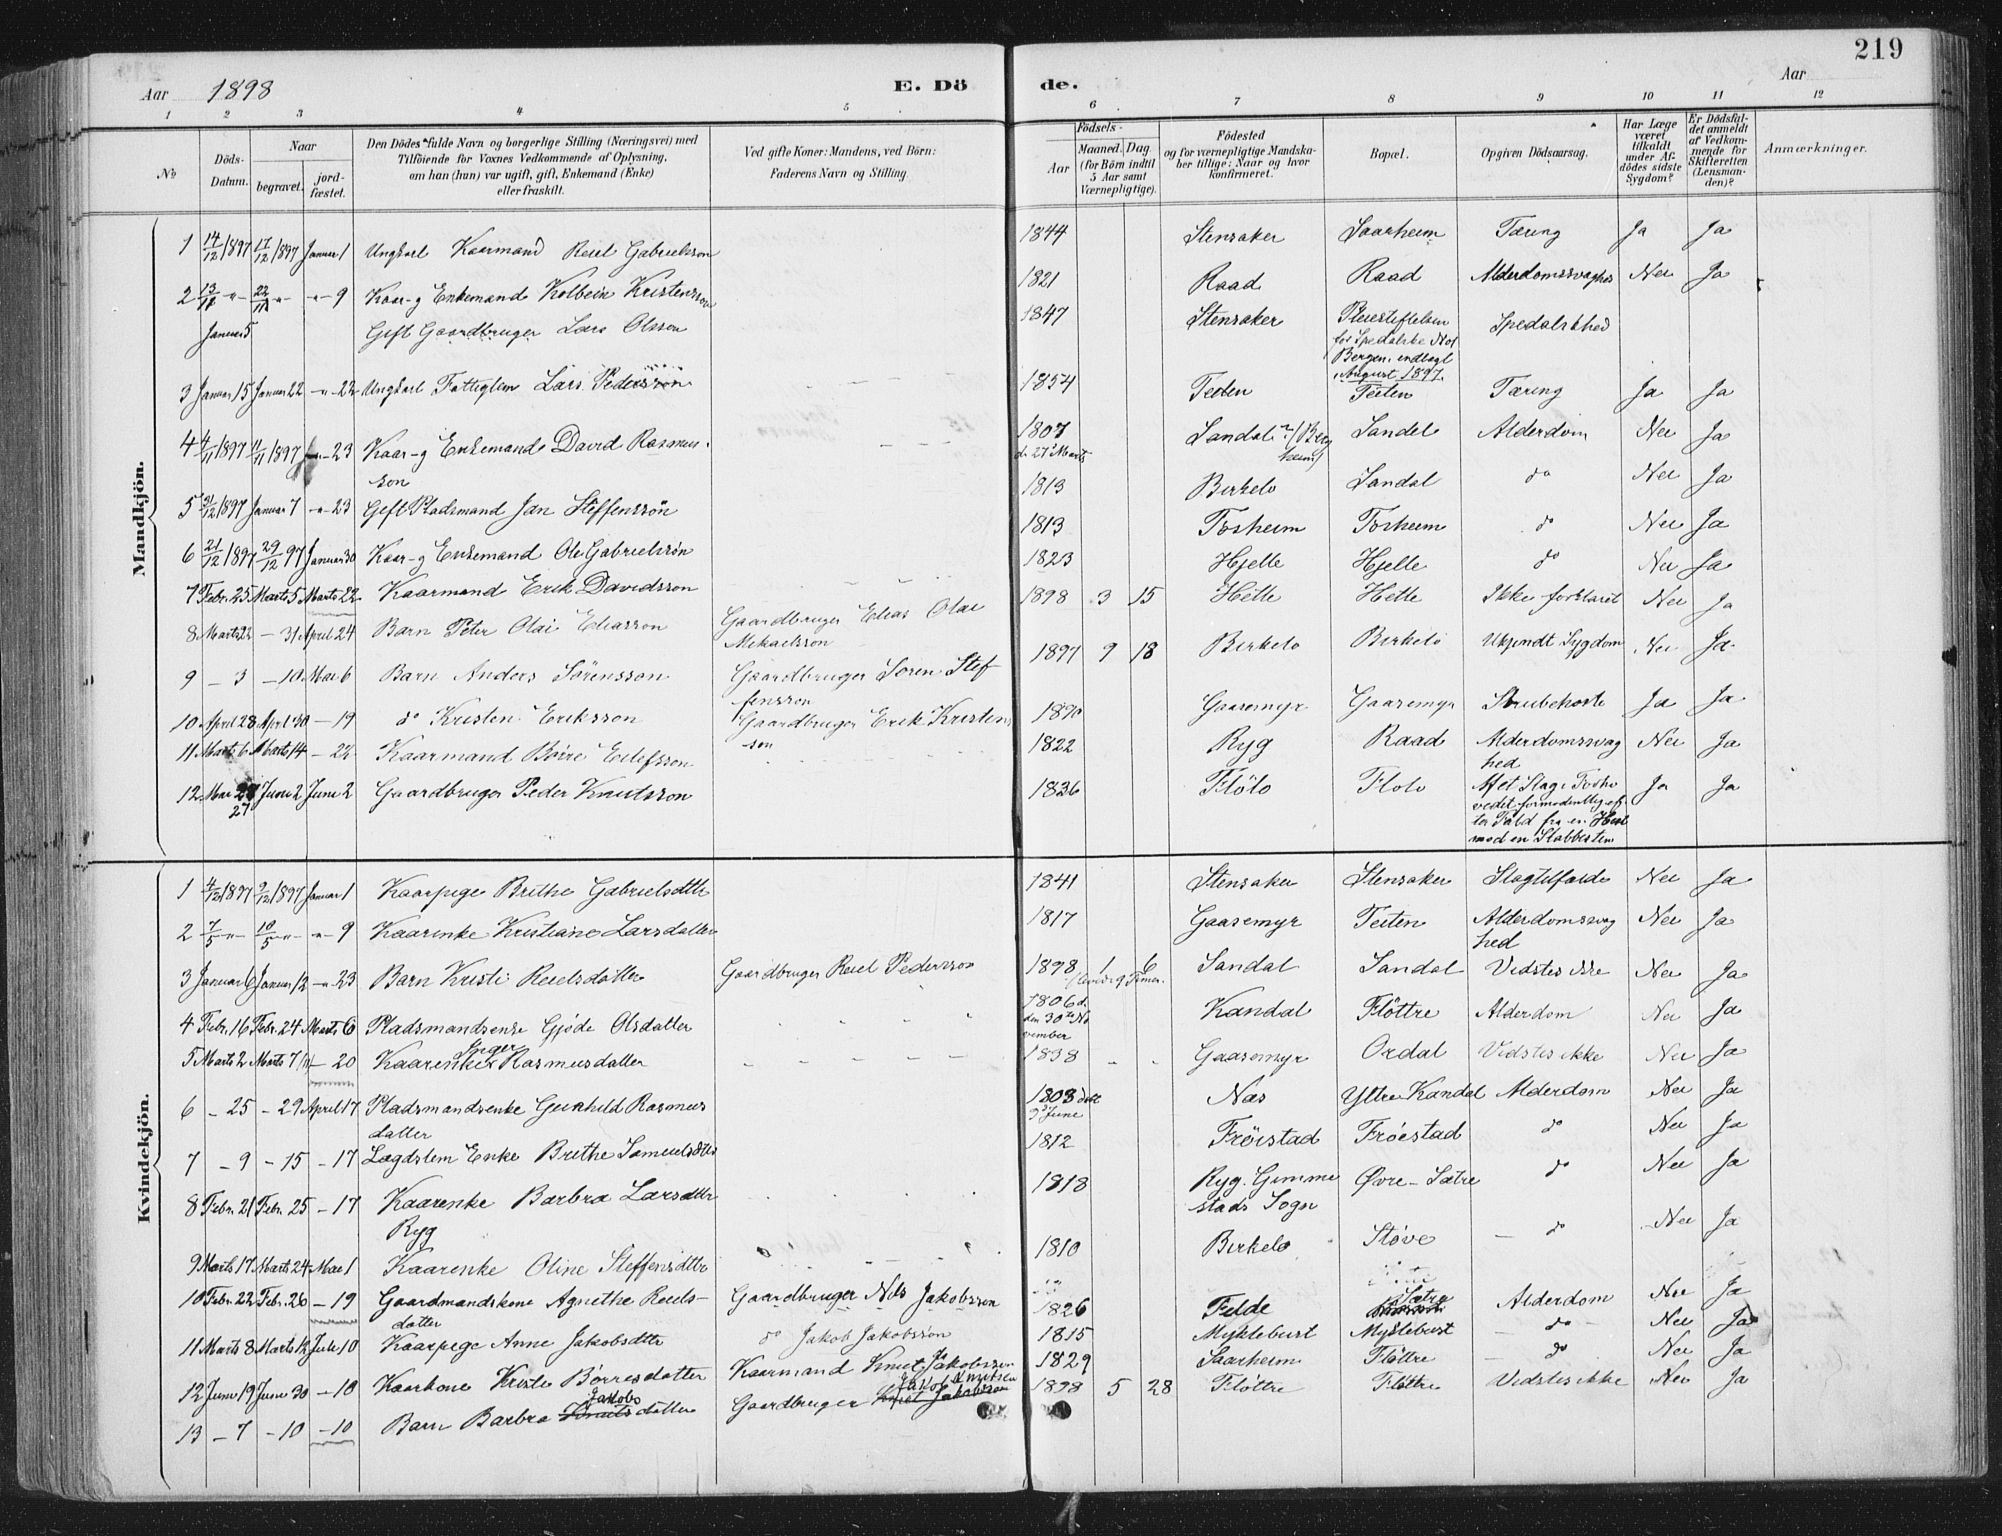 219
Aar 1898 E. Dö de. Aar
1 2 3 4 5 6 7 8 9 10 11 12
No
Döds-Datum.
Naar
begravet.
jord-fæstet.
Den Dödes fulde Navn og borgerlige Stilling (Næringsvei) med
Tilföiende for Voxnes Vedkommende af Oplysning,
om han (hun) var ugift, gift, Enkemand (Enke)
eller fraskilt.
Ved gifte Koner: Mandens, ved Börn:
Faderens Navn og Stilling.
Födsels-
Aar
Maaned. Dag.
(for Börn indtil
5 Aar samt
Værnepligtige).
Födested
og for værnepligtige Mandska-
ber tillige: Naar og hvor
konfirmeret.
Bopæl.
Opgiven Dödsaarsag.
Har Læge
været
tilkaldt
under Af-
dödes sidste
Sygdom?
Er Dödsfal-
det anmeldt
af Vedkom-
mende for
Skifteretten
(Lensman-
den)?
Anmærkninger.
Mandkjön.
1 14/12 1897 17/12 1897 Januar 1 Ungkarl Kaarmand Reiel Gabrielsson 1844 Stensaker Saarheim Tæring Ja Ja
2 13/11 -"- 22/11 -"- -"- 9 Kaar- g Enkemand Kolbein Kristensson 1821 Raad Raad Alderdomssvaghed Nei Ja
Januar 5 Gift Gaardbruger Lars Olsson 1847 Stensaker Pleiestiftelsen
for Spedalske No 1
Bergen, indlagt
August 1897. Spedalskhed
3 Januar 15 Januar 22 -"- 22 Ungkarl Fattiglem Lars Pedersson 1854 Teiten Teiten Tæring Ja Ja
4 4/11 1897 11/11 1897 -"- 23 Kaar- g Enkemand David Rasmus-
son 1807
d. 27 Marts Sandal Sandal Alderdom Nei Ja
5 31/12 1897 Januar 7 -"- 23 Gift Pladsmand Jan Steffensson 1813 Birkelo Sandal do Nei Ja
6 21/12 1897 29/12 97 Januar 30 Kaar- g Enkemand Ole Gabrielsson 1813 Tosheim Tosheim do Nei Ja
7 Febr. 25 Marts 5 Marts 22 Kaarmand Erik Davidsson 1823 Hjelle Hjelle do Nei Ja
8 Marts 22 - 31 April 24 Barn Peter Olai Eliasson Gaardbruger Elias Olai
Mikaelsson 1898 3 15 Hette Hette Ikke forklaret Nei Ja
9 - 3 - 10 Mai 6 Barn Anders Sörensson Gaardbruger Soren Stef
fensson 1897 9 18 Birkelo Birkelo Ukjendt Sygdom Nei Ja
10 April 28 April 30 - 19 do Kristen Eriksson Gaardbruger Erik Kristen
son 1890 Gaasemyr Gaasemyr Strubehoste Ja Ja
11 Marts 6 Marts 14 - 22 Kaarmand Börre Eilefsson 1822 Ryg Raad Alderdomssvag
hed Nei Ja
12 Mai 27 Juni 2 Juni 2 Gaardbruger Peder Knutsson 1836 Flölo Flolo Af et Slag i Forho
vedet formodentlig ef-
ter Fald fra en Hest
mod en Stabbesten Ja Ja
Kvindekjön.
1 4/12 1897 9/12 1897 Januar 1 Kaarpige Brithe Gabrielsdtr 1841 Stensaker Stensaker Slagtilfælde Nei Ja
2 7/5 -"- 10/5 -"- -"- 9 Kaarenke Kristiane Larsdatter 1817 Gaasemyr Teiten Alderdomssvag
hed Nei Ja
3 Januar 6 Januar 12 -"- 23 Barn Kristi Reielsdatter Gaardbruger Reiel Pedersson 1898 1 6
(levede 9 Timer. Sandal Sandal Vidstes ikke Nei Ja
4 Febr. 16 Febr. 24 Marts 6 Pladsmandsenke Gjöde Olsdatter 1806 d.
den 30te No
vember Kandal Flöttre Alderdom Nei Ja
5 Marts 2 Marts 7 - 20 Kaarenke Inger Rasmusdatter 1838 Gaasemyr Ordal Vidstes ikke Nei Ja
6 - 25 - 29 April 17 Pladsmandsenke Gunhild Rasmus
datter 1808
9de June Nas Yttre Kandal Alderdom Nei Ja
7 - 9 - 15 - 17 Lægdslem Enke Brithe Samuelsdtr 1812 Fröistad Fröestad do Nei Ja
8 Febr. 21 Febr. 25 - 17 Kaarenke Barbra Larsdtr
Ryg 1818 Ryg. Gimme
stads Sogn Øvre-Sætre do Nei Ja
9 Marts 17 Marts 24 Mai 1 Kaarenke Oline Steffensdttr 1810 Birkelo Støve - do Nei Ja
10 Febr. 22 Febr. 26 - 19 Gaardmandskone Agnethe Reiels-
datter Gaardbruger Nils Jakobsson 1826 Felde Sætre Alderdom Nei Ja
11 Marts 8 Marts 12 Juli 10 Kaarpige Anne Jakobsdttr do Jakob Jakobsson 1815 Myklebust Myklebust - do - Nei Ja
12 Juni 19 Juni 30 - 10 Kaarkone Kristi Börresdatter Kaarmand Knut Jakobsson 1829 Saarheim Flöttre - do Nei Ja
13 - 7 - 10 - 10 Barn Barbra Jakobs datter Gaardbruger Jakob Knutsen 1898 5 28 Flöttre Flöttre Vidstes ikke Nei Ja